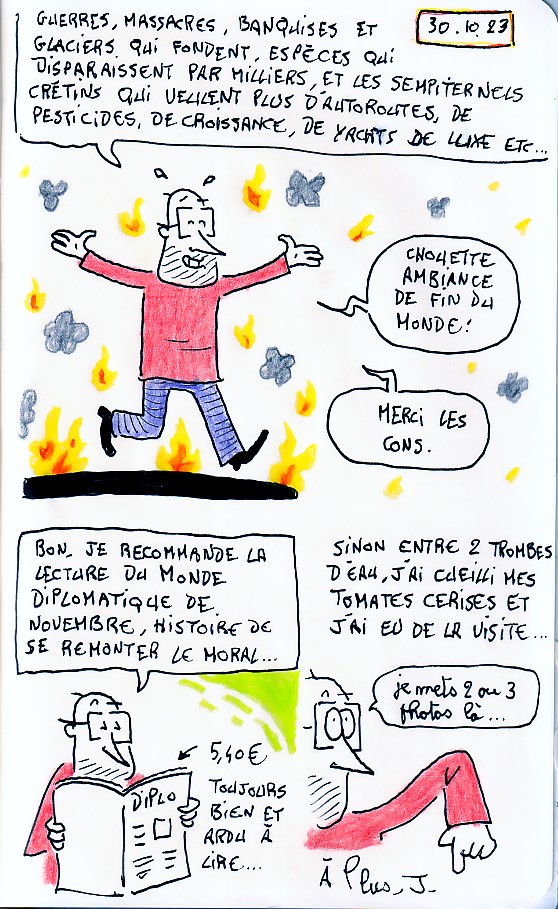 30.10.23
GUERRES, MASSACRES, BANQUISES ET
GLACIERS QUI FONDENT, ESPÈCES QUI
DISPARAISSENT PAR MILLIERS, ET LES SEMPITERNELS
CRÉTINS QUI VEULENT PLUS D'AUTOROUTES, DE
PESTICIDES, DE CROISSANCE, DE YACHTS DE LUXE ETC...
CHOUETTE
AMBIANCE
DE FIN DU
MONDE!
MERCI LES
CONS.
BON, JE RECOMMANDE LA
LECTURE DU MONDE
DIPLOMATIQUE DE
NOVEMBRE, HISTOIRE DE
SE REMONTER LE MORAL...
DIPLO
5,40€
TOUJOURS
BIEN ET
ARDU À
LIRE...
SINON ENTRE 2 TROMBES
D'EAU, J'AI CUEILLI MES
TOMATES CERISES ET
J'AI EU DE LA VISITE...
je mets 2 ou 3
photos là...
À Plus, J.